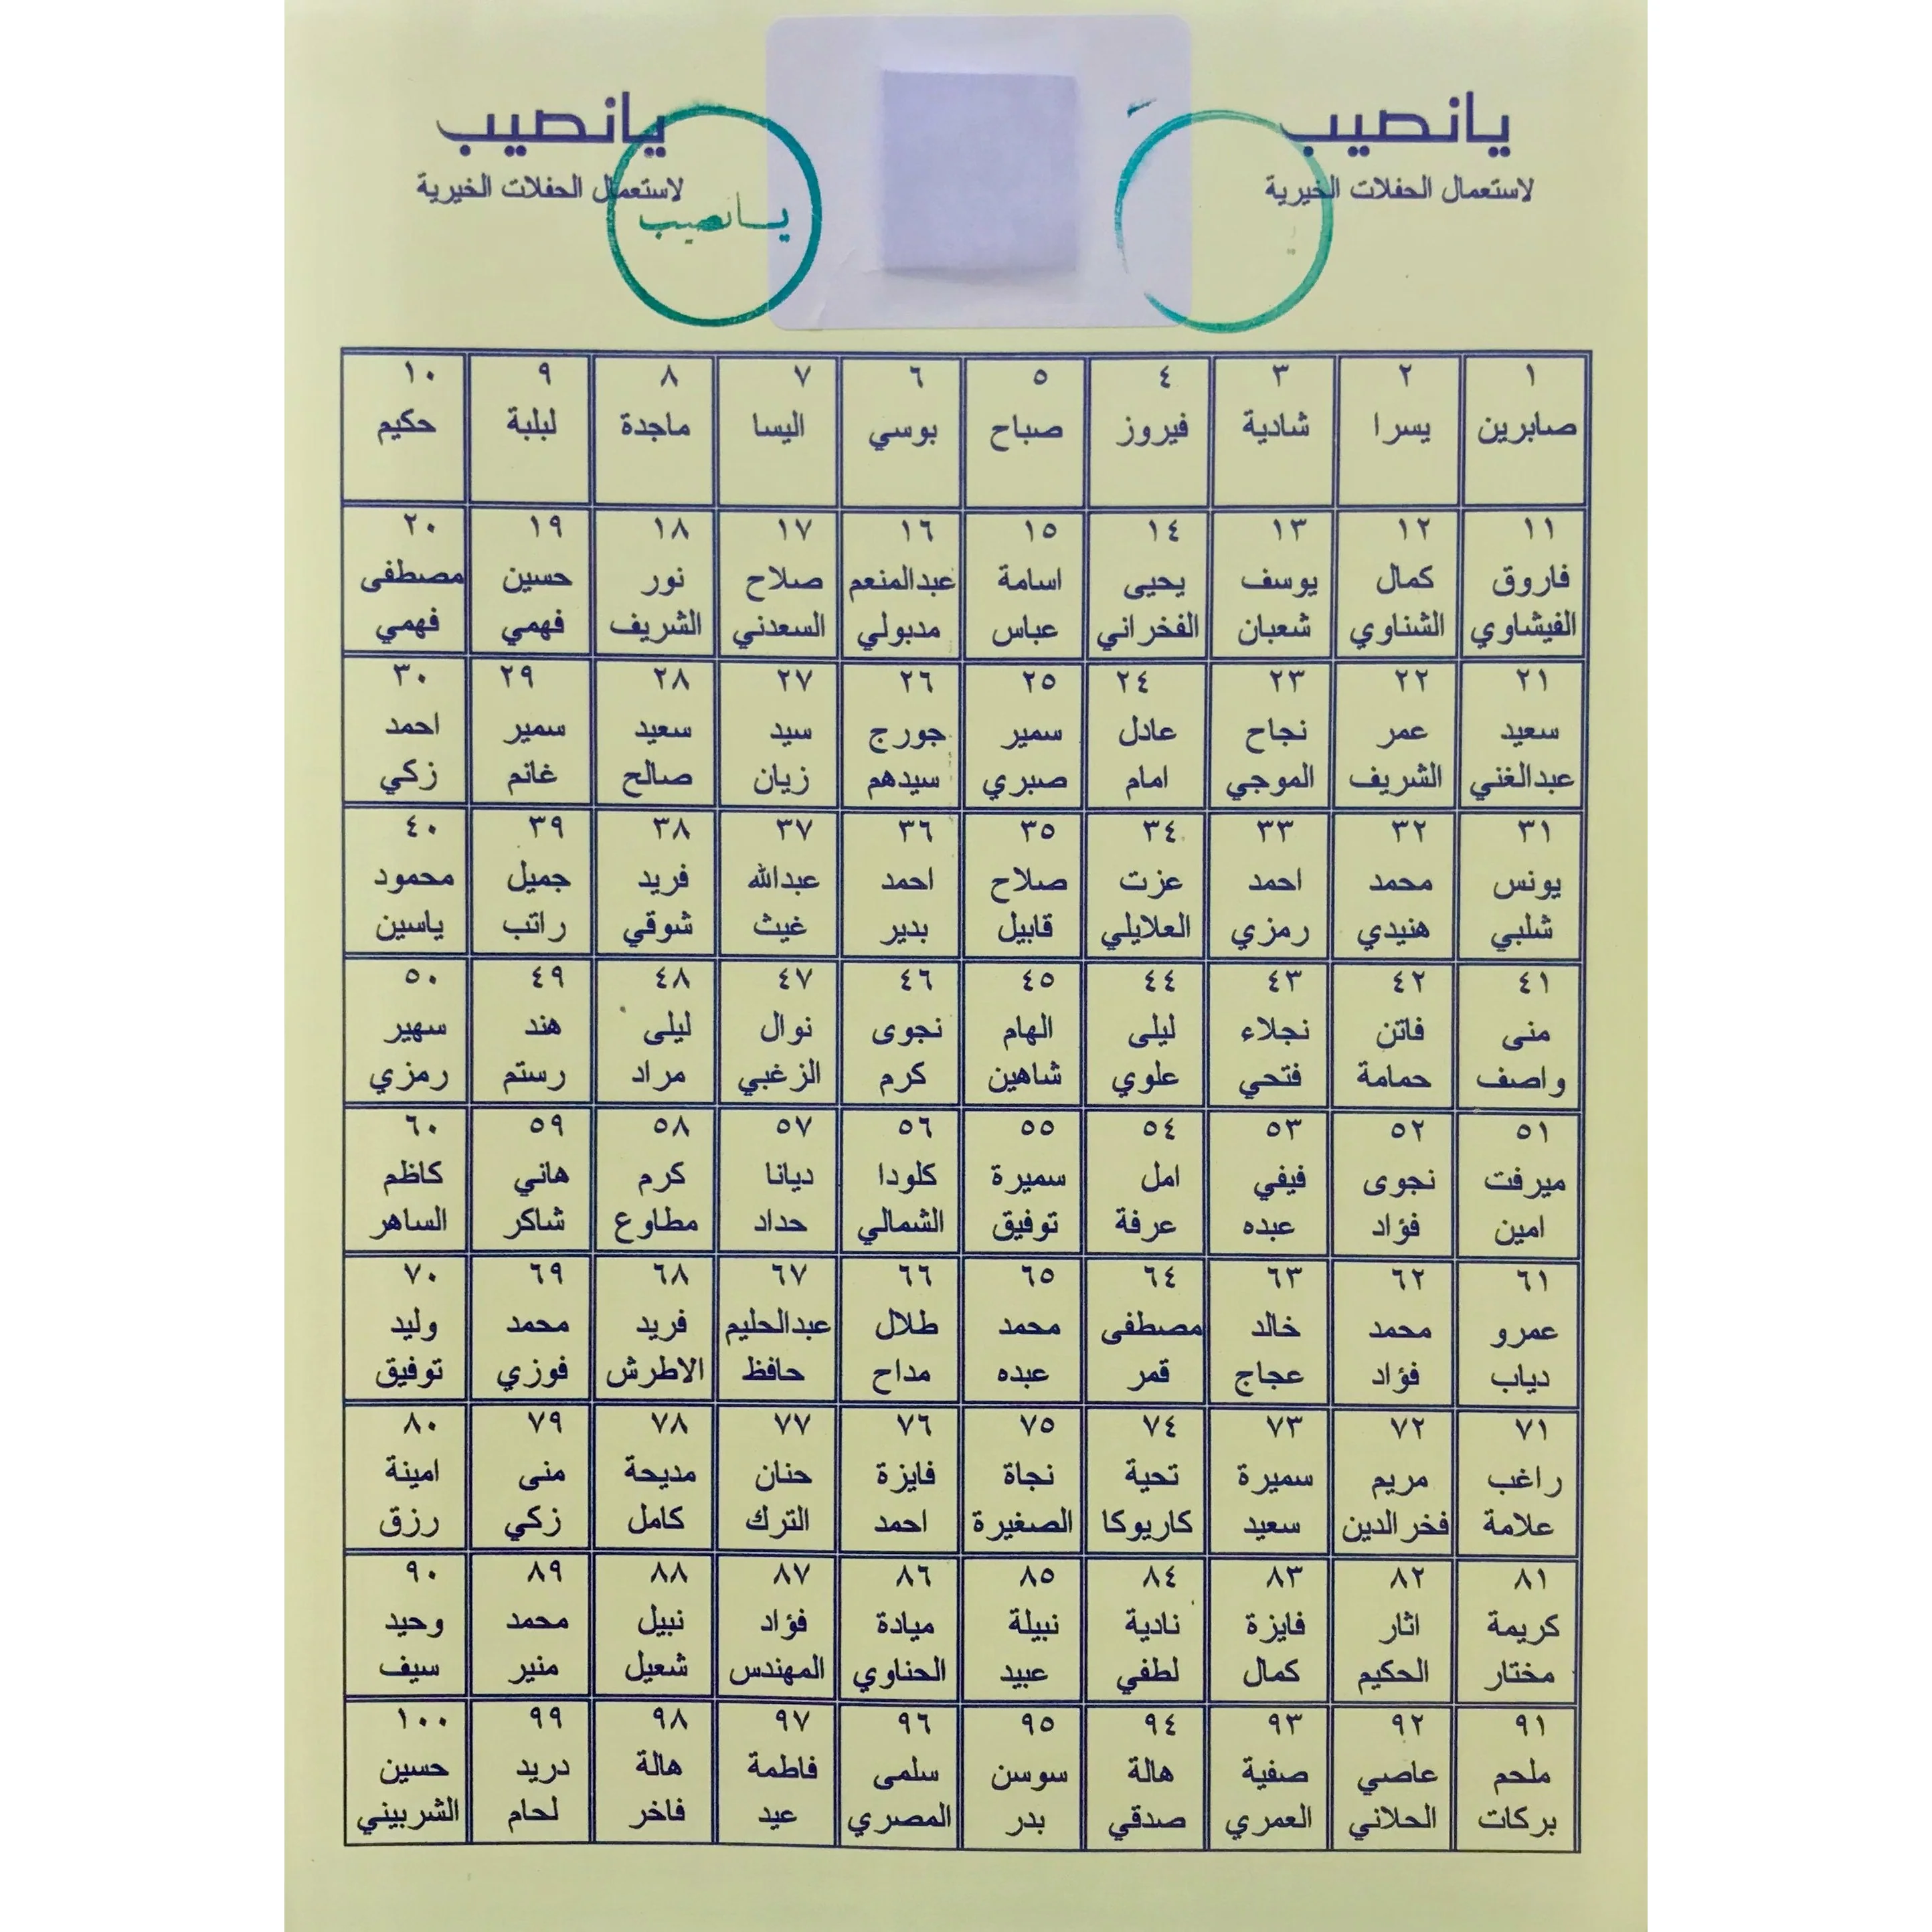 يانصيب
لاستعمال الحفلات الخيرية
يانصيب
لاستعمال الحفلات الخيرية
يانصيب
١ ٢ ٣ ٤ ٥ ٦ ٧ ٨ ٩ ١٠
صابرين يسرا شادية فيروز صباح بوسي اليسا ماجدة لبلبة حكيم
١١ ١٢ ١٣ ١٤ ١٥ ١٦ ١٧ ١٨ ١٩ ٢٠
فاروق كمال يوسف يحيى اسامة عبدالمنعم صلاح نور حسين مصطفى
الفيشاوي الشناوي شعبان الفخراني عباس مدبولي السعدني الشريف فهمي فهمي
٢١ ٢٢ ٢٣ ٢٤ ٢٥ ٢٦ ٢٧ ٢٨ ٢٩ ٣٠
سعيد عمر نجاح عادل سمير جورج سيد سعيد سمير احمد
عبدالغني الشريف الموجي امام صبري سيدهم زيان صالح غانم زكي
٣١ ٣٢ ٣٣ ٣٤ ٣٥ ٣٦ ٣٧ ٣٨ ٣٩ ٤٠
يونس محمد احمد عزت صلاح احمد عبدالله فريد جميل محمود
شلبي هنيدي رمزي العلايلي قابيل بدير غيث شوقي راتب ياسين
٤١ ٤٢ ٤٣ ٤٤ ٤٥ ٤٦ ٤٧ ٤٨ ٤٩ ٥٠
منى فاتن نجلاء ليلى الهام نجوى نوال ليلى هند سهير
واصف حمامة فتحي علوي شاهين كرم الزغبي مراد رستم رمزي
٥١ ٥٢ ٥٣ ٥٤ ٥٥ ٥٦ ٥٧ ٥٨ ٥٩ ٦٠
ميرفت نجوى فيفي امل سميرة كلودا ديانا كرم هاني كاظم
امين فؤاد عبده عرفة توفيق الشمالي حداد مطاوع شاكر الساهر
٦١ ٦٢ ٦٣ ٦٤ ٦٥ ٦٦ ٦٧ ٦٨ ٦٩ ٧٠
عمرو محمد خالد مصطفى محمد طلال عبدالحليم فريد محمد وليد
دياب فؤاد عجاج قمر عبده مداح حافظ الاطرش فوزي توفيق
٧١ ٧٢ ٧٣ ٧٤ ٧٥ ٧٦ ٧٧ ٧٨ ٧٩ ٨٠
راغب مريم سميرة تحية نجاة فايزة حنان مديحة منى امينة
علامة فخرالدين سعيد كاريوكا الصغيرة احمد الترك كامل زكي رزق
٨١ ٨٢ ٨٣ ٨٤ ٨٥ ٨٦ ٨٧ ٨٨ ٨٩ ٩٠
كريمة اثار فايزة نادية نبيلة ميادة فؤاد نبيل محمد وحيد
مختار الحكيم كمال لطفي عبيد الحناوي المهندس شعيل منير سيف
٩١ ٩٢ ٩٣ ٩٤ ٩٥ ٩٦ ٩٧ ٩٨ ٩٩ ١٠٠
ملحم عاصي صفية هالة سوسن سلمى فاطمة هالة دريد حسين
بركات الحلاني العمري صدقي بدر المصري عيد فاخر لحام الشربيني